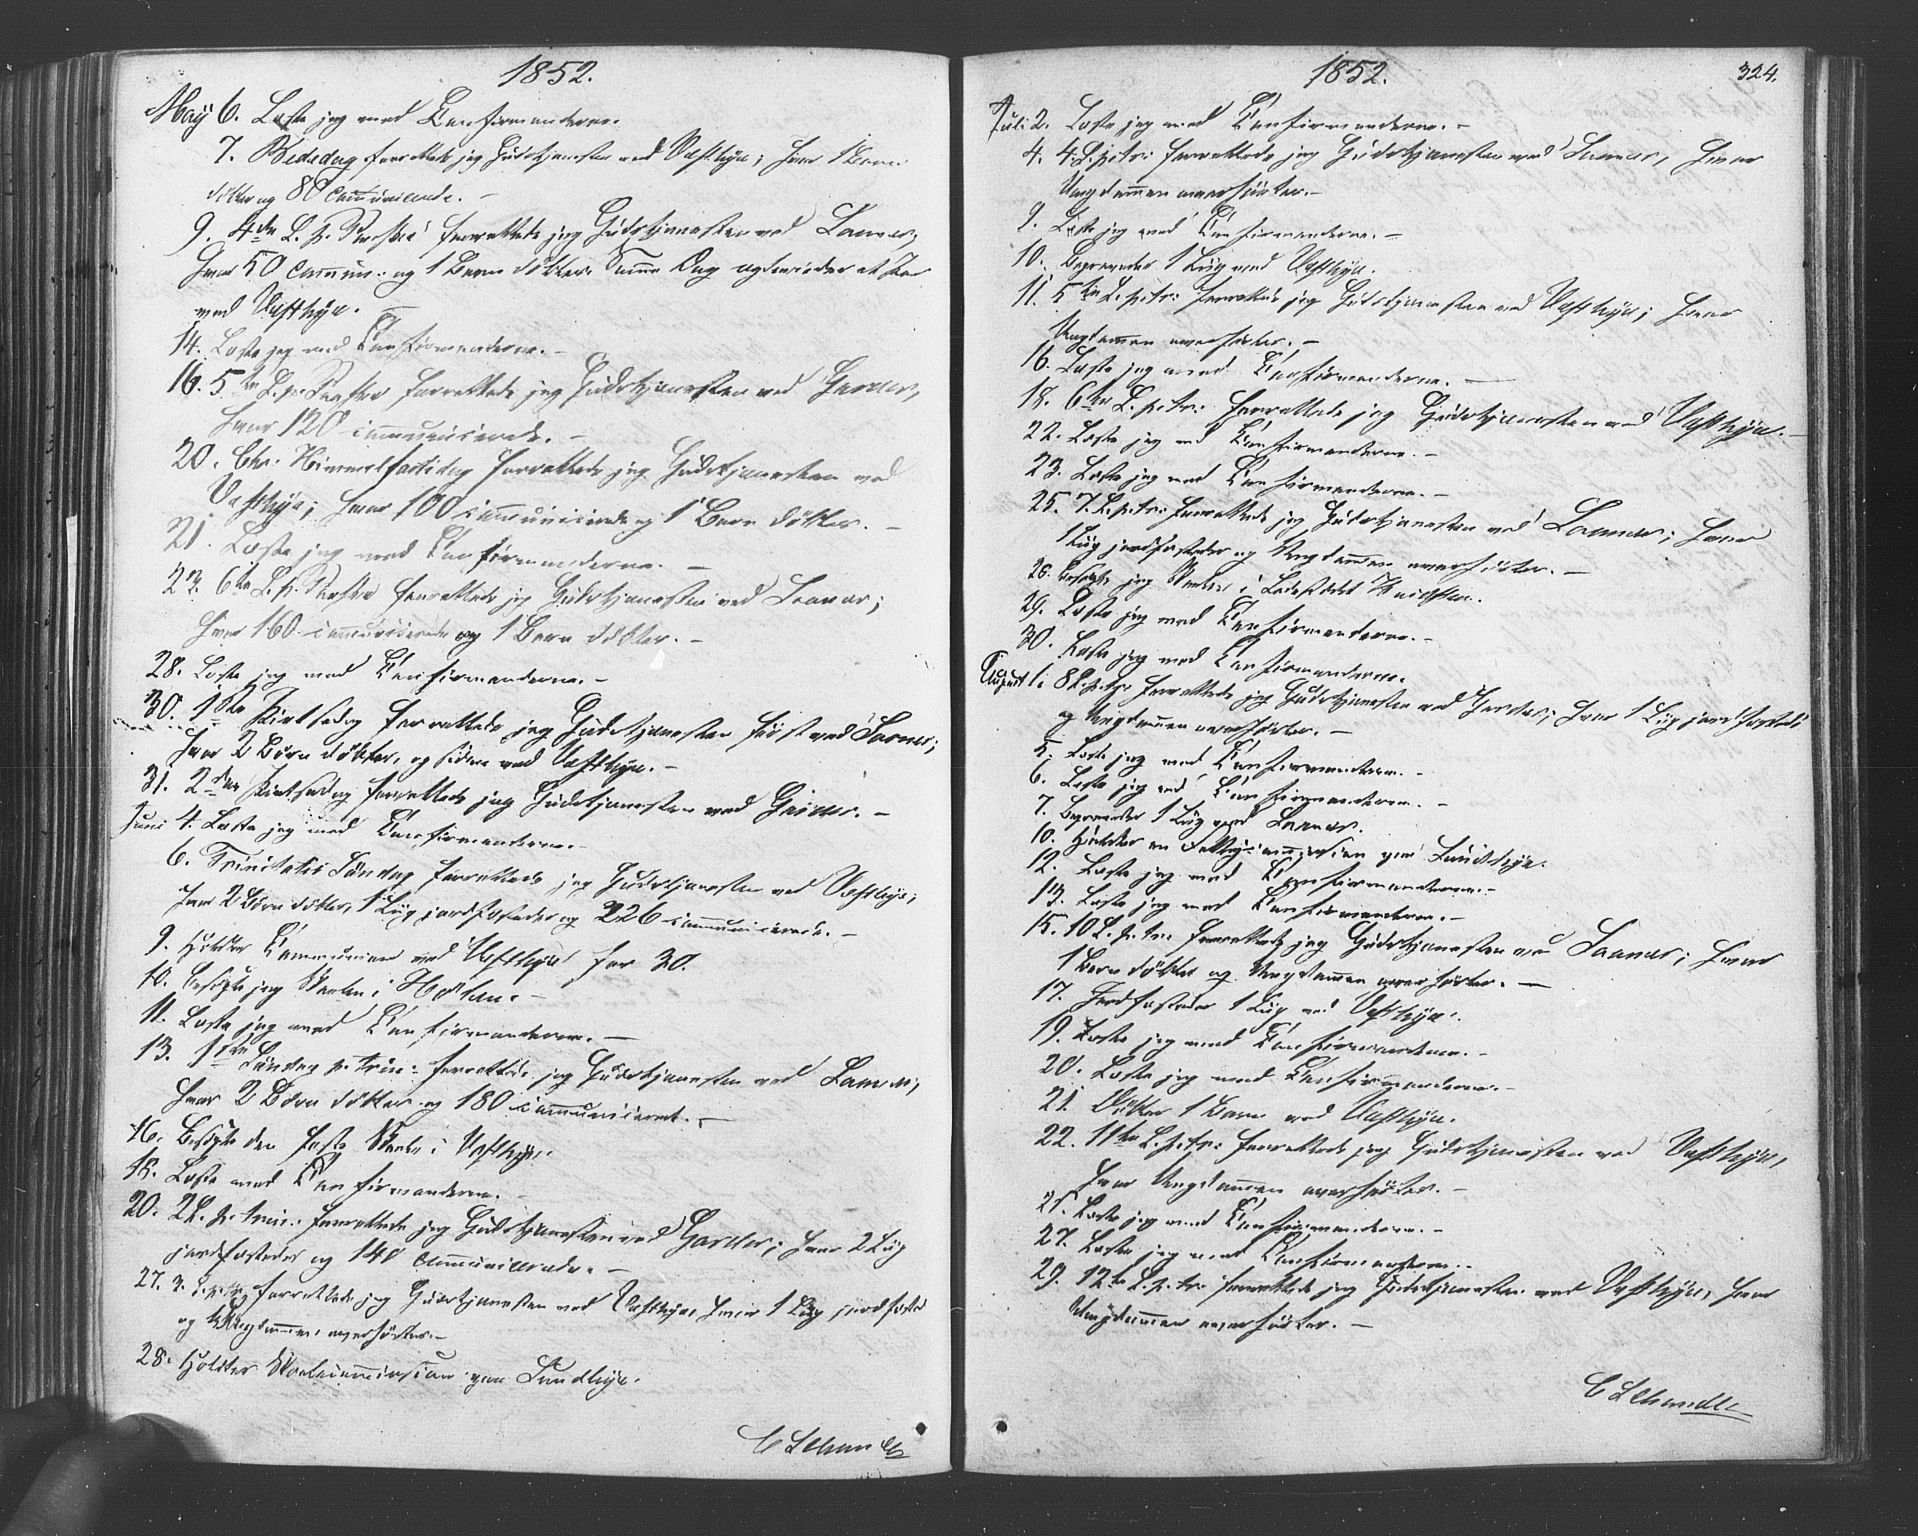 1852.
May 6. Læste jeg med Confirmanderne.
7. Bededag forrettede jeg Gudstjenesten ved Vestbye; hvor 1 Barn
døbtes og 80 communicerede. –
9. 4de S. p. Paaske forrettede jeg Gudstjenesten ved Saaner,
hvor 50 commun: og 1 Barn døbtes. Samme Dag et Par
ved Vestbye. –
14. Læste jeg med Confirmanderne. –
16. 5te S. p. Paaske forrettede jeg Gudstjenesten ved Garder,
hvor 120 communicerede. –
20. Chr: Himmelfartsdag forrettede jeg Gudstjenesten ved
Vestbye; hvor 100 communicerede og 1 Barn døbtes. –
21. Læste jeg med Confirmanderne. –
23. 6te S. p. Paaske forrettede jeg Gudstjenesten ved Saaner;
hvor 160 communicerede og 1 Barn døbtes. –
28. Læste jeg med Confirmanderne. –
30. 1ste Pintsedag forrettede jeg Gudstjenesten først ved Saaner;
hvor 2 Børn døbtes, og siden ved Vestbye. –
31. 2den Pintsedag forrettede jeg Gudstjenesten ved Garder. –
Juni 4. Læste jeg med Confirmanderne. –
6. Trinitatis Søndag forrettede jeg Gudstjenesten ved Vestbye;
hvor 2 Børn døbtes, 1 Liig jordfæstedes og 226 communicerede. –
9. Holdtes Communion ved Vestbye for 30.
10. Besøgte jeg Skolen i Hølen. –
11. Læste jeg med Confirmanderne. –
13. 1ste Søndag p. trin: forrettede jeg Gudstjenesten ved Saaner,
hvor 2 Børn døbtes og 180 communiceret. –
16. Besøgte den faste Skole i Vestbye.
18. Læste med Confirmanderne. –
20. 2 S. p. trin: forrettede jeg Gudstjenesten ved Garder; hvor 2 Liig
jordfæstedes og 140 communicerede. –
27. 3. S. p. tr: forrettede jeg Gudstjenesten ved Vestbye, hvor 1 Liig jordfæstet
og Ungdommen overhørtes. –
28. Holdtes Skolecommission paa Sundbye.
C Schandl
1852.
324.
Juli 2. Læste jeg med Confirmanderne. –
4. 4 S. p. tr: forrettede jeg Gudstjenesten ved Saaner, hvor
Ungdommen overhørtes. –
9. Læste jeg med Confirmanderne. –
10. Begravedes 1 Liig ved Vestbye.
11. 5te S. p. tr: forrettede jeg Gudstjenesten ved Vestbye; hvor
Ungdommen overhørtes. –
16. Læste jeg med Confirmanderne. –
18. 6te S. p. tr: forrettede jeg Gudstjenesten ved Vestbye. –
22. Læste jeg med Confirmanderne. –
23. Læste jeg med Confirmanderne. –
25. 7. S. p. tr: forrettede jeg Gudstjenesten ved Saaner; hvor
1 Liig jordfæstedes og Ungdommen overhørtes. –
26. besøgte jeg Skolen i Ladestedet
29. Læste jeg med Confirmanderne. –
30. Læste jeg med Confirmanderne.
August 1. 8 S. p. tr: forrettede jeg Gudstjenesten ved Garder; hvor 1 Liig jordfæstedes
og Ungdommen overhørtes. –
5. Læste jeg med Confirmanderne. –
6. Læste jeg med Confirmanderne. –
7. Begravedes 1 Liig ved Saaner.
10. Holdtes en Fattigcommission paa Sundbye.
12. Læste jeg med Confirmanderne. –
13. Læste jeg med Confirmanderne. –
15. 10 S. p. tr: forrettede jeg Gudstjenesten ved Saaner; hvor
1 Barn døbtes og Ungdommen overhørtes. –
17. Jordfæstedes 1 Liig ved Vestbye.
19. Læste jeg med Confirmanderne. –
20. Læste jeg med Confirmanderne. –
21. Døbtes 1 Barn ved Vestbye.
22. 11te S. p. tr: forrettede jeg Gudstjenesten ved Vestbye,
hvor Ungdommen overhørtes. –
25. Læste jeg med Confirmanderne. –
27. Læste jeg med Confirmanderne. –
29. 12te S. p. tr: forrettede jeg Gudstjenesten ved Vestbye, hvor
Ungdommen overhørtes. –
C Schandl